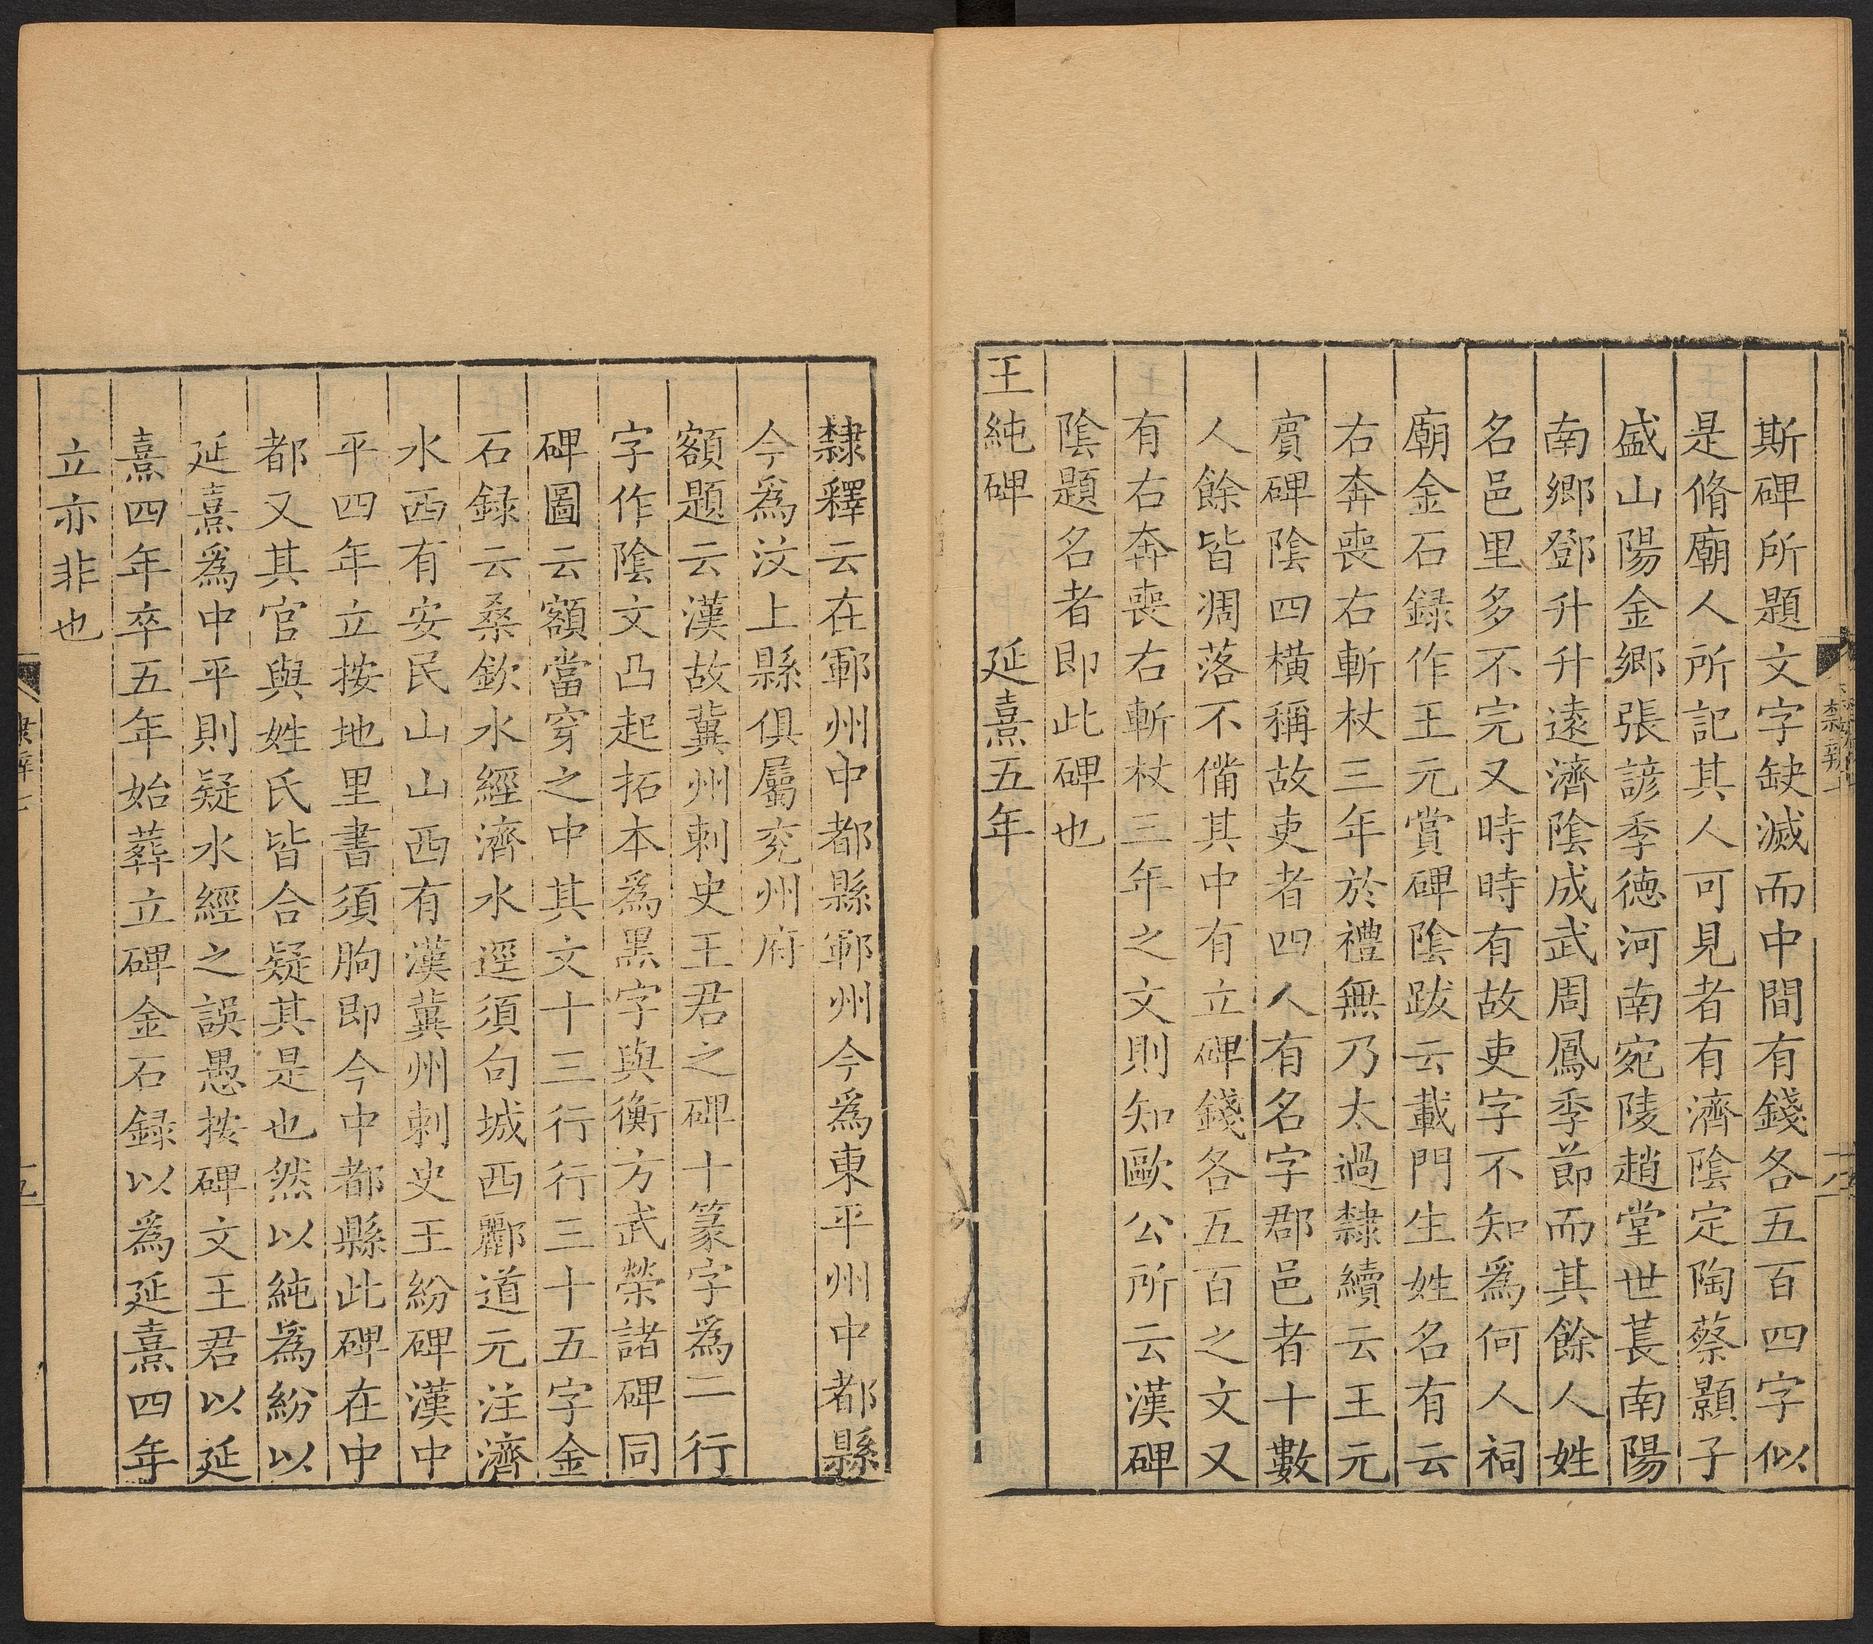 斯碑所題文字缺滅而中間有錢各五百四字似
是脩廟人所記其人可見者有濟陰定陶蔡顥子
盛山陽金鄉張諺季德河南宛陵趙堂世萇南陽
南鄉鄧升升遠濟陰成武周鳳季節而其餘人姓
名邑里多不完又時時有故吏字不知爲何人祠
廟金石録作王元賞碑陰跋云載門生姓名有云
右奔喪右斬杖三年於禮無乃太過隸續云王元
賔碑陰四橫稱故吏者四人有名字郡邑者十數
人餘皆凋落不僃其中有立碑錢各五百之文又
有右奔喪右斬杖三年之文則知歐公所云漢碑
陰題名者即此碑也
王純碑 延熹五年
隸釋云在鄆州中都縣鄆州今爲東平州中都縣
今爲汶上縣俱屬兖州府
額題云漢故冀州刺史王君之碑十篆字爲二行
字作陰文凸起拓本爲黑字與衡方武榮諸碑同
碑圖云額當穿之中其文十三行行三十五字金
石録云桑欽水經濟水逕須句城西酈道元注濟
水西有安民山山西有漢冀州刺史王紛碑漢中
平四年立按地里書須朐即今中都縣此碑在中
都又其官與姓氏皆合疑其是也然以純爲紛以
延熹爲中平則疑水經之誤愚按碑文王君以延
熹四年卒五年始葬立碑金石録以爲延熹四年
立亦非也